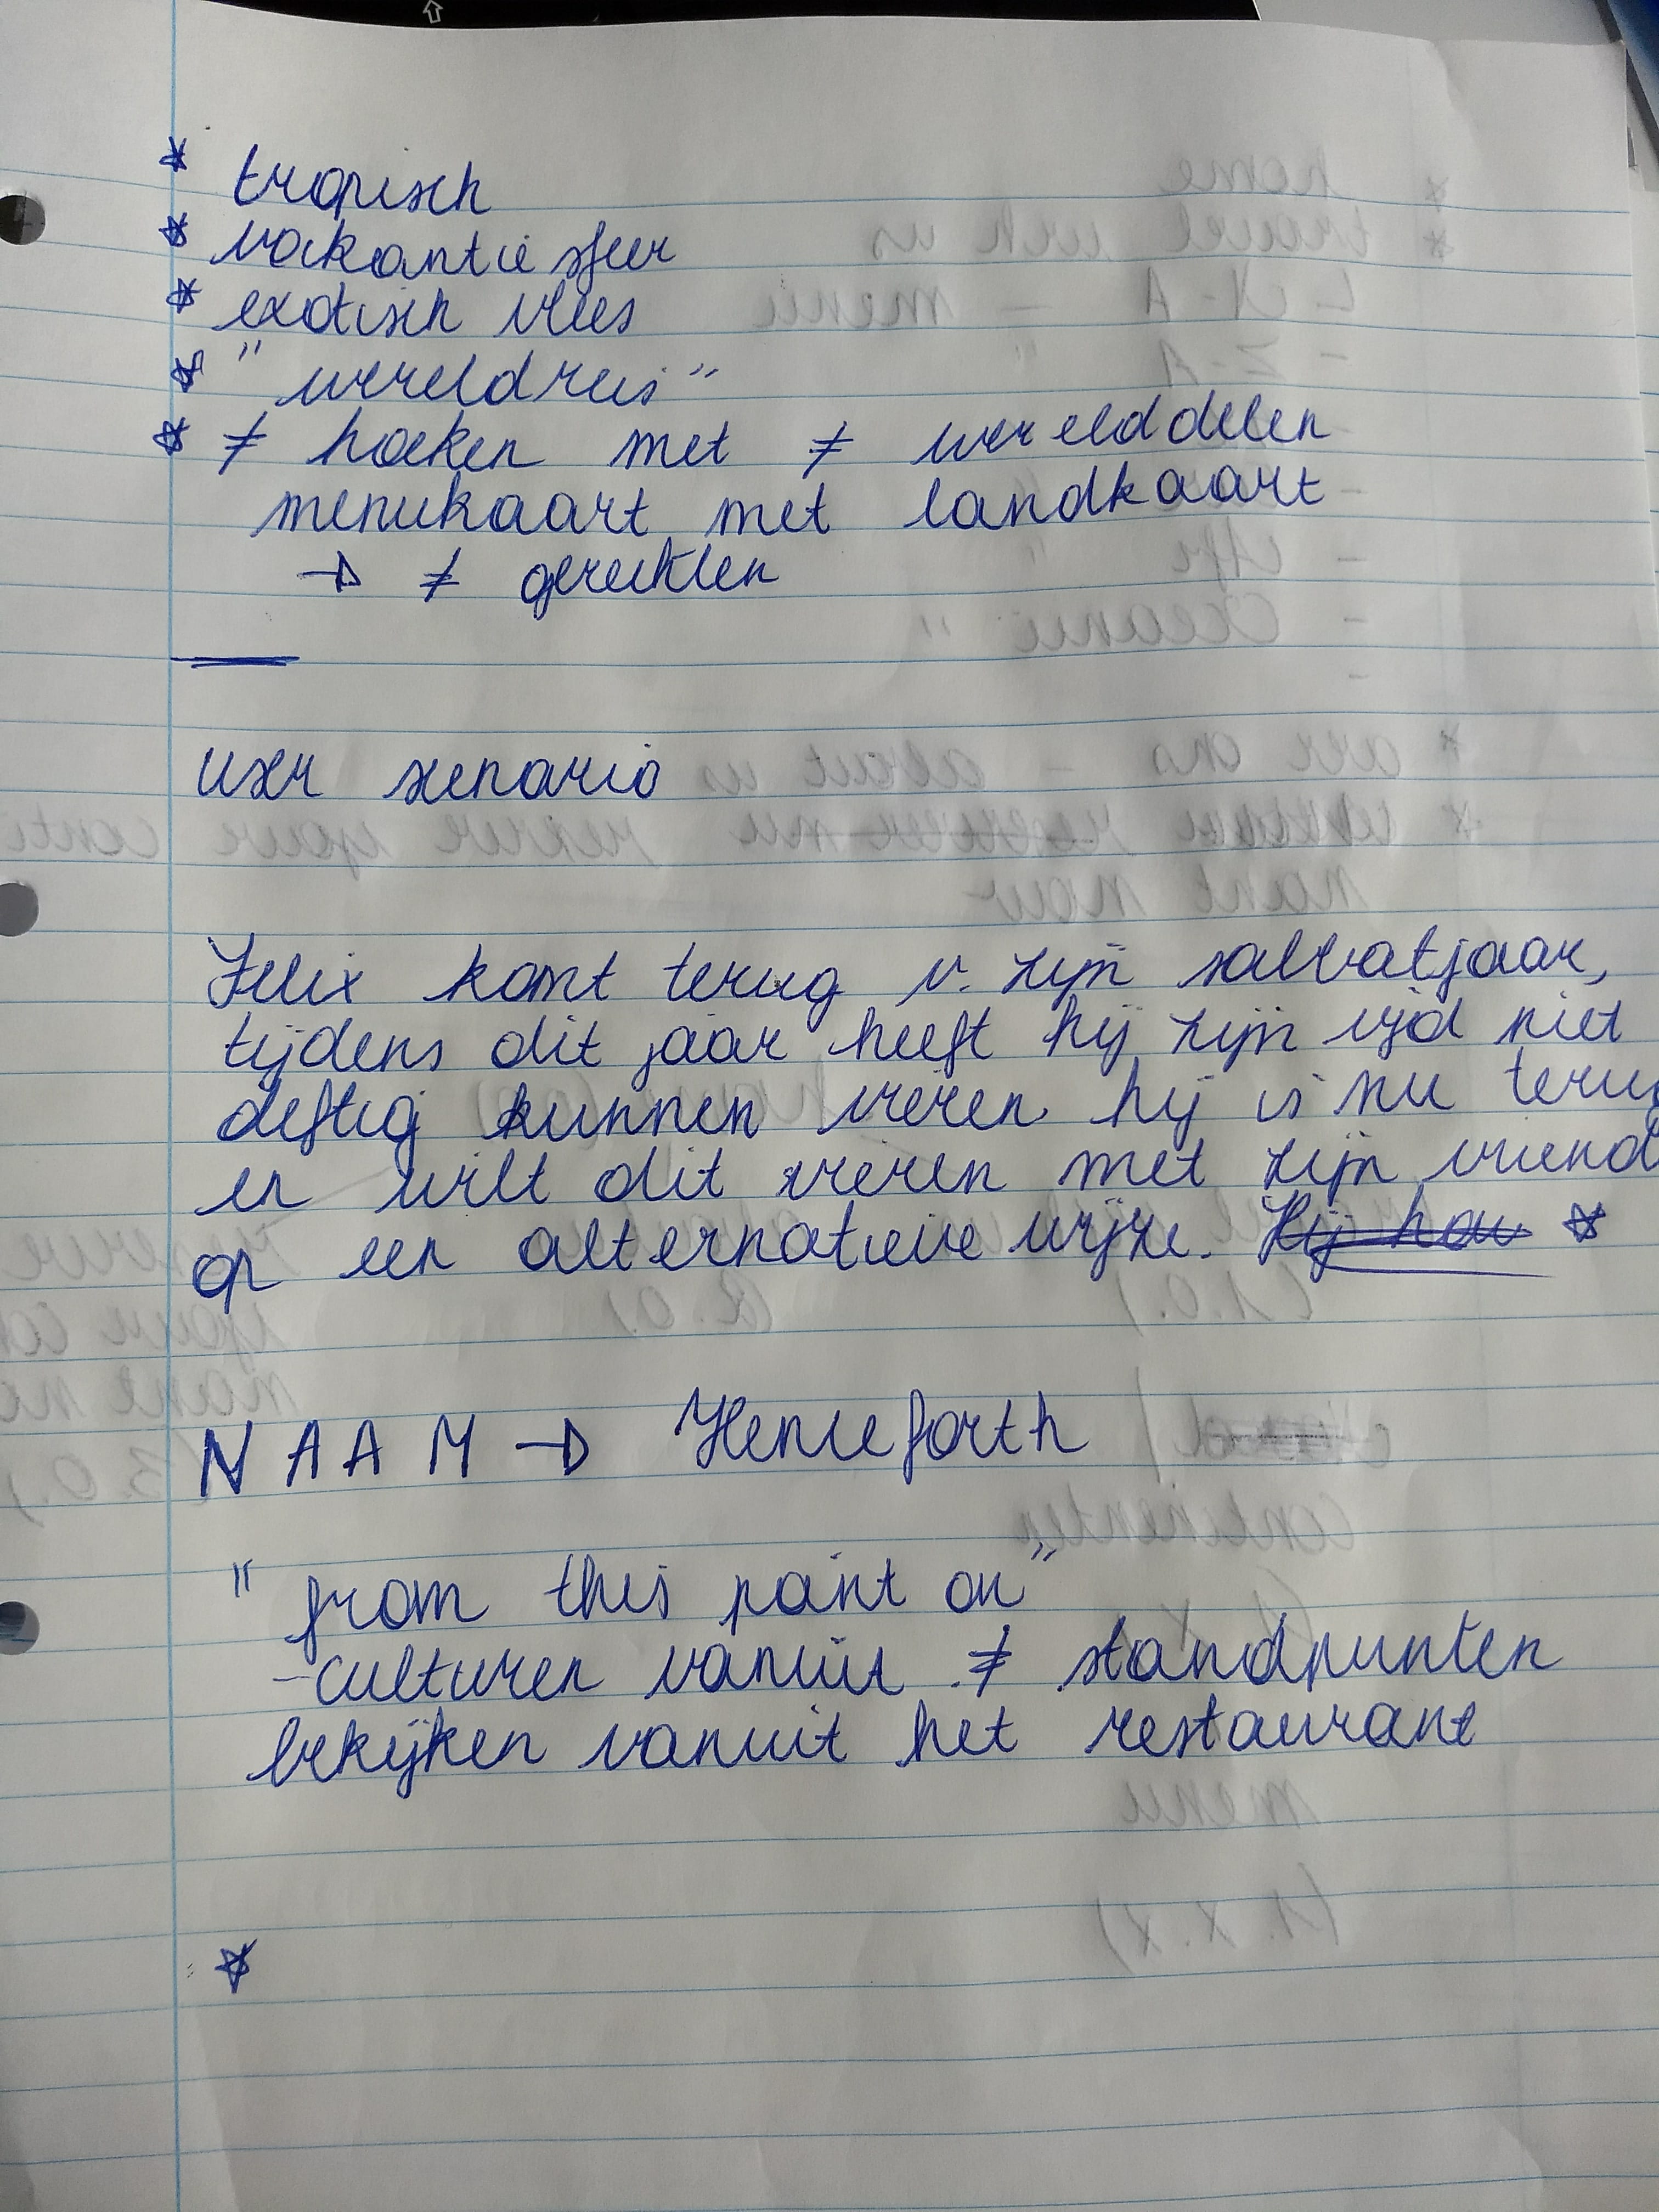 * tropisch
* vakantie sfeer
* exotisch vlees
* "wereldreis"
* ≠ hoeken met ≠ werelddelen
menukaart met landkaart
→ ≠ gerechten
user scenario
Felix komt terug v. zijn sabbatjaar,
tijdens dit jaar heeft hij zijn vijd niet
deftig kunnen vieren hij is nu terug
en wilt dit vieren met zijn vriend
op een alternatieve wijze. Hij hou *
NAAM → Henceforth
"from this point on"
-culturen vanuit ≠ standpunten
bekijken vanuit het restaurant
*